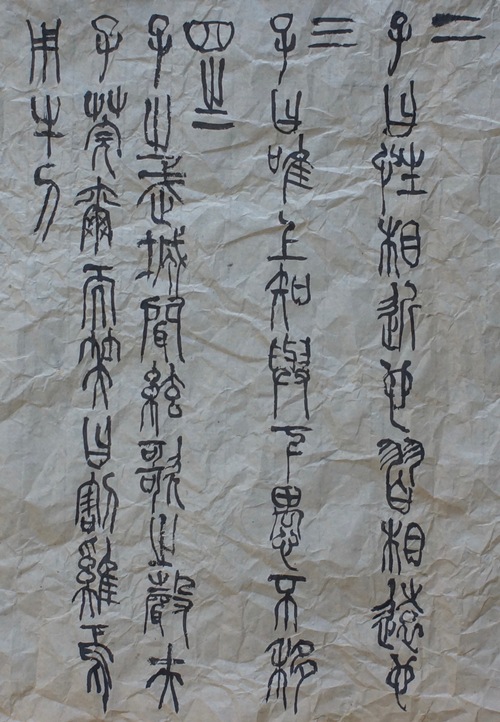 二
子曰性相近也習相遠也
三
子曰唯上知與下愚不移
四之一
子之武城聞絃歌之聲夫
子莞爾而笑曰割雞焉
用牛刀